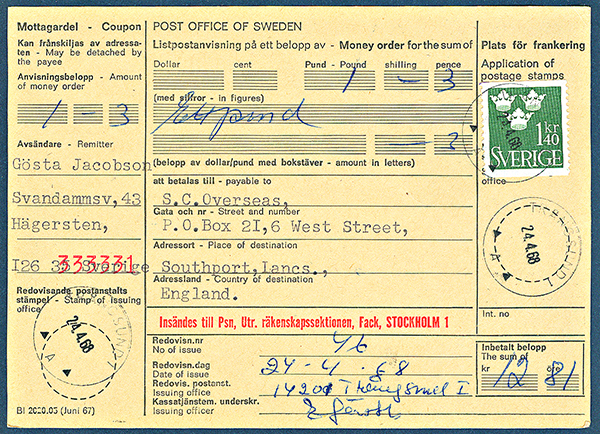 Mottagardel - Coupon
Kan frånskiljas av adressa-
ten - May be detached by
the payee
Anvisningsbelopp - Amount
of money order
1 - 3
Avsändare - Remitter
Gösta Jacobson
Svandammsv,43
Hägersten,
I26 35 Sverige
333331
Redovisande postanstalts
stämpel - Stamp of issuing
office
24.4.68
A
BI 2020.05 (Juni 67)
POST OFFICE OF SWEDEN
Listpostanvisning på ett belopp av - Money order for the sum of
Dollar cent Pund - Pound shilling pence
1 - 3
(med siffror - in figures)
Ett pund
- 3
(belopp av dollar/pund med bokstäver - amount in letters)
att betalas till - payable to
S.C.Overseas,
Gata och nr - Street and number
P.O.Box 2I,6 West Street,
Adressort - Place of destination
Southport,Lancs.,
Adressland - Country of destination
England.
Insändes till Psn, Utr. räkenskapssektionen, Fack, STOCKHOLM 1
Redovisn.nr
No of issue
Redovisn.dag
Date of issue
24-4-68
Redovis. postanst.
Issuing office
Kassatjänstem. underskr.
Issuing officer
Plats för frankering
Application of
postage stamps
1 kr
40
SVERIGE
24.4.68
office
24.4.68
A
Int. no
Inbetalt belopp
The sum of
kr öre
12 81